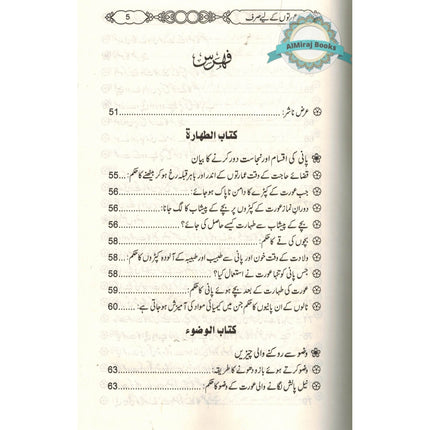 صرف عورتوں کے لیے
5
AlMiraj Books
فہرس
عرض ناشر: 51
كتاب الطهارة
پانی کی اقسام اور نجاست دور کرنے کا بیان
قضائے حاجت کے وقت عمارتوں کے اندر اور باہر قبلہ رخ ہو کر بیٹھنے کا حکم: 55
جب عورت کے کپڑے کا دامن ناپاک ہو جائے: 56
دوران نماز عورت کے کپڑوں پر بچے کے پیشاب کا لگ جانا: 56
بچے کے پیشاب سے طہارت کیسے حاصل کی جائے؟ 56
بچوں کی قے کا حکم: 58
ولادت کے وقت خون اور پانی سے طبیب اور طبیبہ کے آلودہ کپڑوں کا حکم: 58
جس پانی کو تنہا عورت نے استعمال کیا؟ 58
عورت کی طہارت کے بعد بچے ہوئے پانی کا حکم: 59
نالوں کے ان پانیوں کا حکم جن میں کیمیائی مواد کی آمیزش ہو جاتی ہے: 60
كتاب الوضوء
وضو سے روکنے والی چیزیں
وضو کرتے ہوئے بازو دھونے کا طریقہ: 63
نیل پالش لگانے والی عورت کے وضو کا حکم: 63